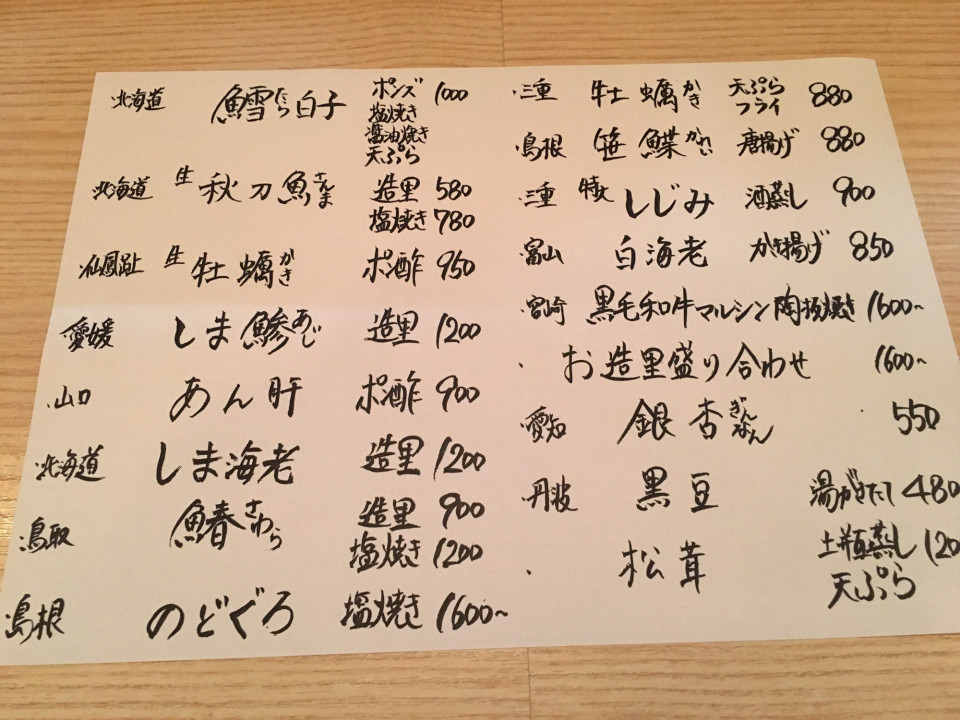 北海道 鱈たら白子 ポンズ 1000
塩焼き
醤油焼き
天ぷら
北海道 生 秋刀魚さんま 造里 580
塩焼き 780
仙鳳趾 生 牡蠣かき ポン酢 950
愛媛 しま鯵あじ 造里 1200
山口 あん肝 ポン酢 900
北海道 しま海老 造里 1200
鳥取 鰆さわら 造里 900
塩焼き 1200
島根 のどぐろ 塩焼き 1600~
・三重 牡蠣かき 天ぷら 880
フライ
・島根 笹鰈かれい 唐揚げ 880
・三重 特大 しじみ 酒蒸し 900
・富山 白海老 かき揚げ 850
・宮崎 黒毛和牛マルシン陶板焼き 1600~
・お造里盛り合わせ 1600~
・愛知 銀杏ぎんなん 550
・丹波 黒豆 湯がきたて 480
・松茸 土瓶蒸し 120
天ぷら